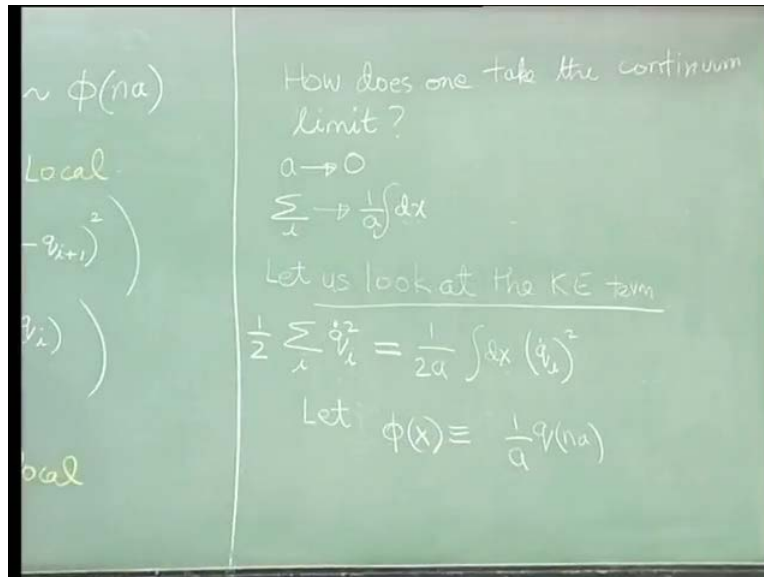 ~ φ(na)
Local
- q_{i+1})²)
q_i))
ocal
How does one take the continuum
limit?
a → 0
∑_i → 1/a ∫dx
Let us look at the KE term
1/2 ∑_i q̇_i² = 1/2a ∫dx (q̇_i)²
Let φ(x) ≡ 1/a q(na)